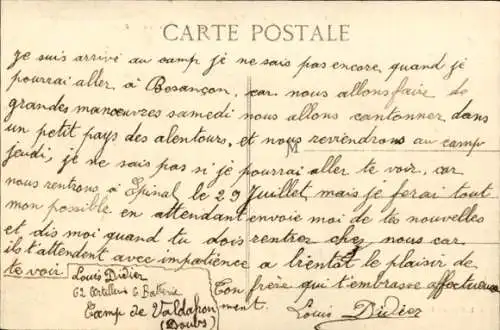 CARTE POSTALE
Je suis arrivé au camp je ne sais pas encore quand je
pourrai aller à Besançon, car nous allons faire de
grandes manœuvres samedi nous allons cantonner dans
un petit pays des alentours, et nous reviendrons au camp
jeudi, je ne sais pas si je pourrai aller te voir, car
nous rentrons à Epinal le 29 Juillet, mais je ferai tout
mon possible, en attendant envoie moi de tes nouvelles
et dis moi quand tu dois rentrer chez nous car
ils t'attendent avec impatience a bientôt le plaisir de
te voir Ton frère qui t'embrasse affectueuse
ment. Louis Didier
Louis Didier
62 Artillerie 6 Batterie
Camp de Valdahon
(Doubs)
M